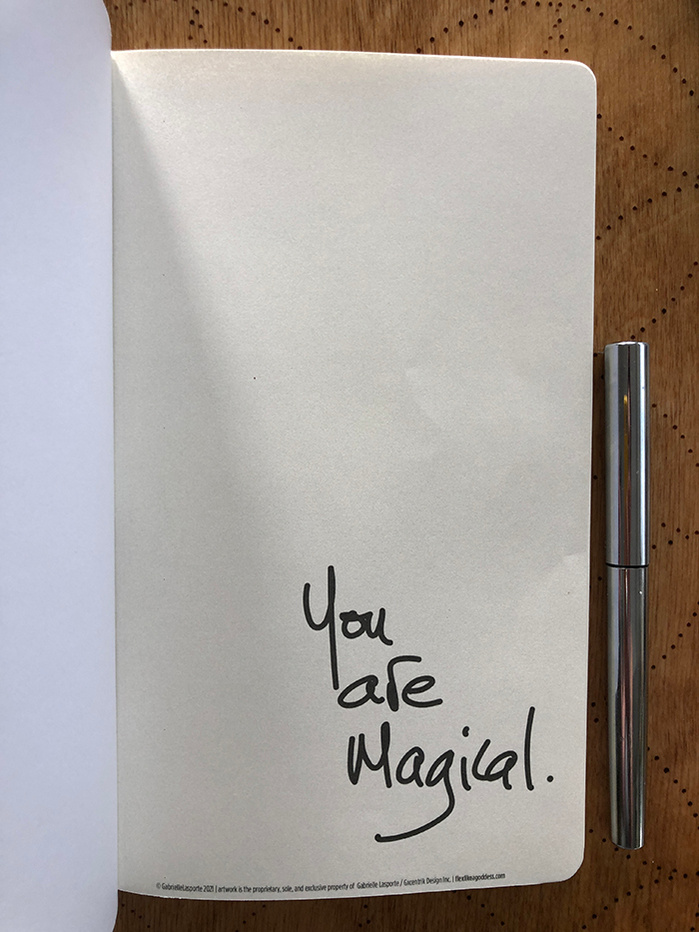 You
are
Magical.
© GabrielleLasporte 2021 | artwork is the proprietary, sole, and exclusive property of Gabrielle Lasporte / Gxcentrik Design Inc. | flexlikeagoddess.com